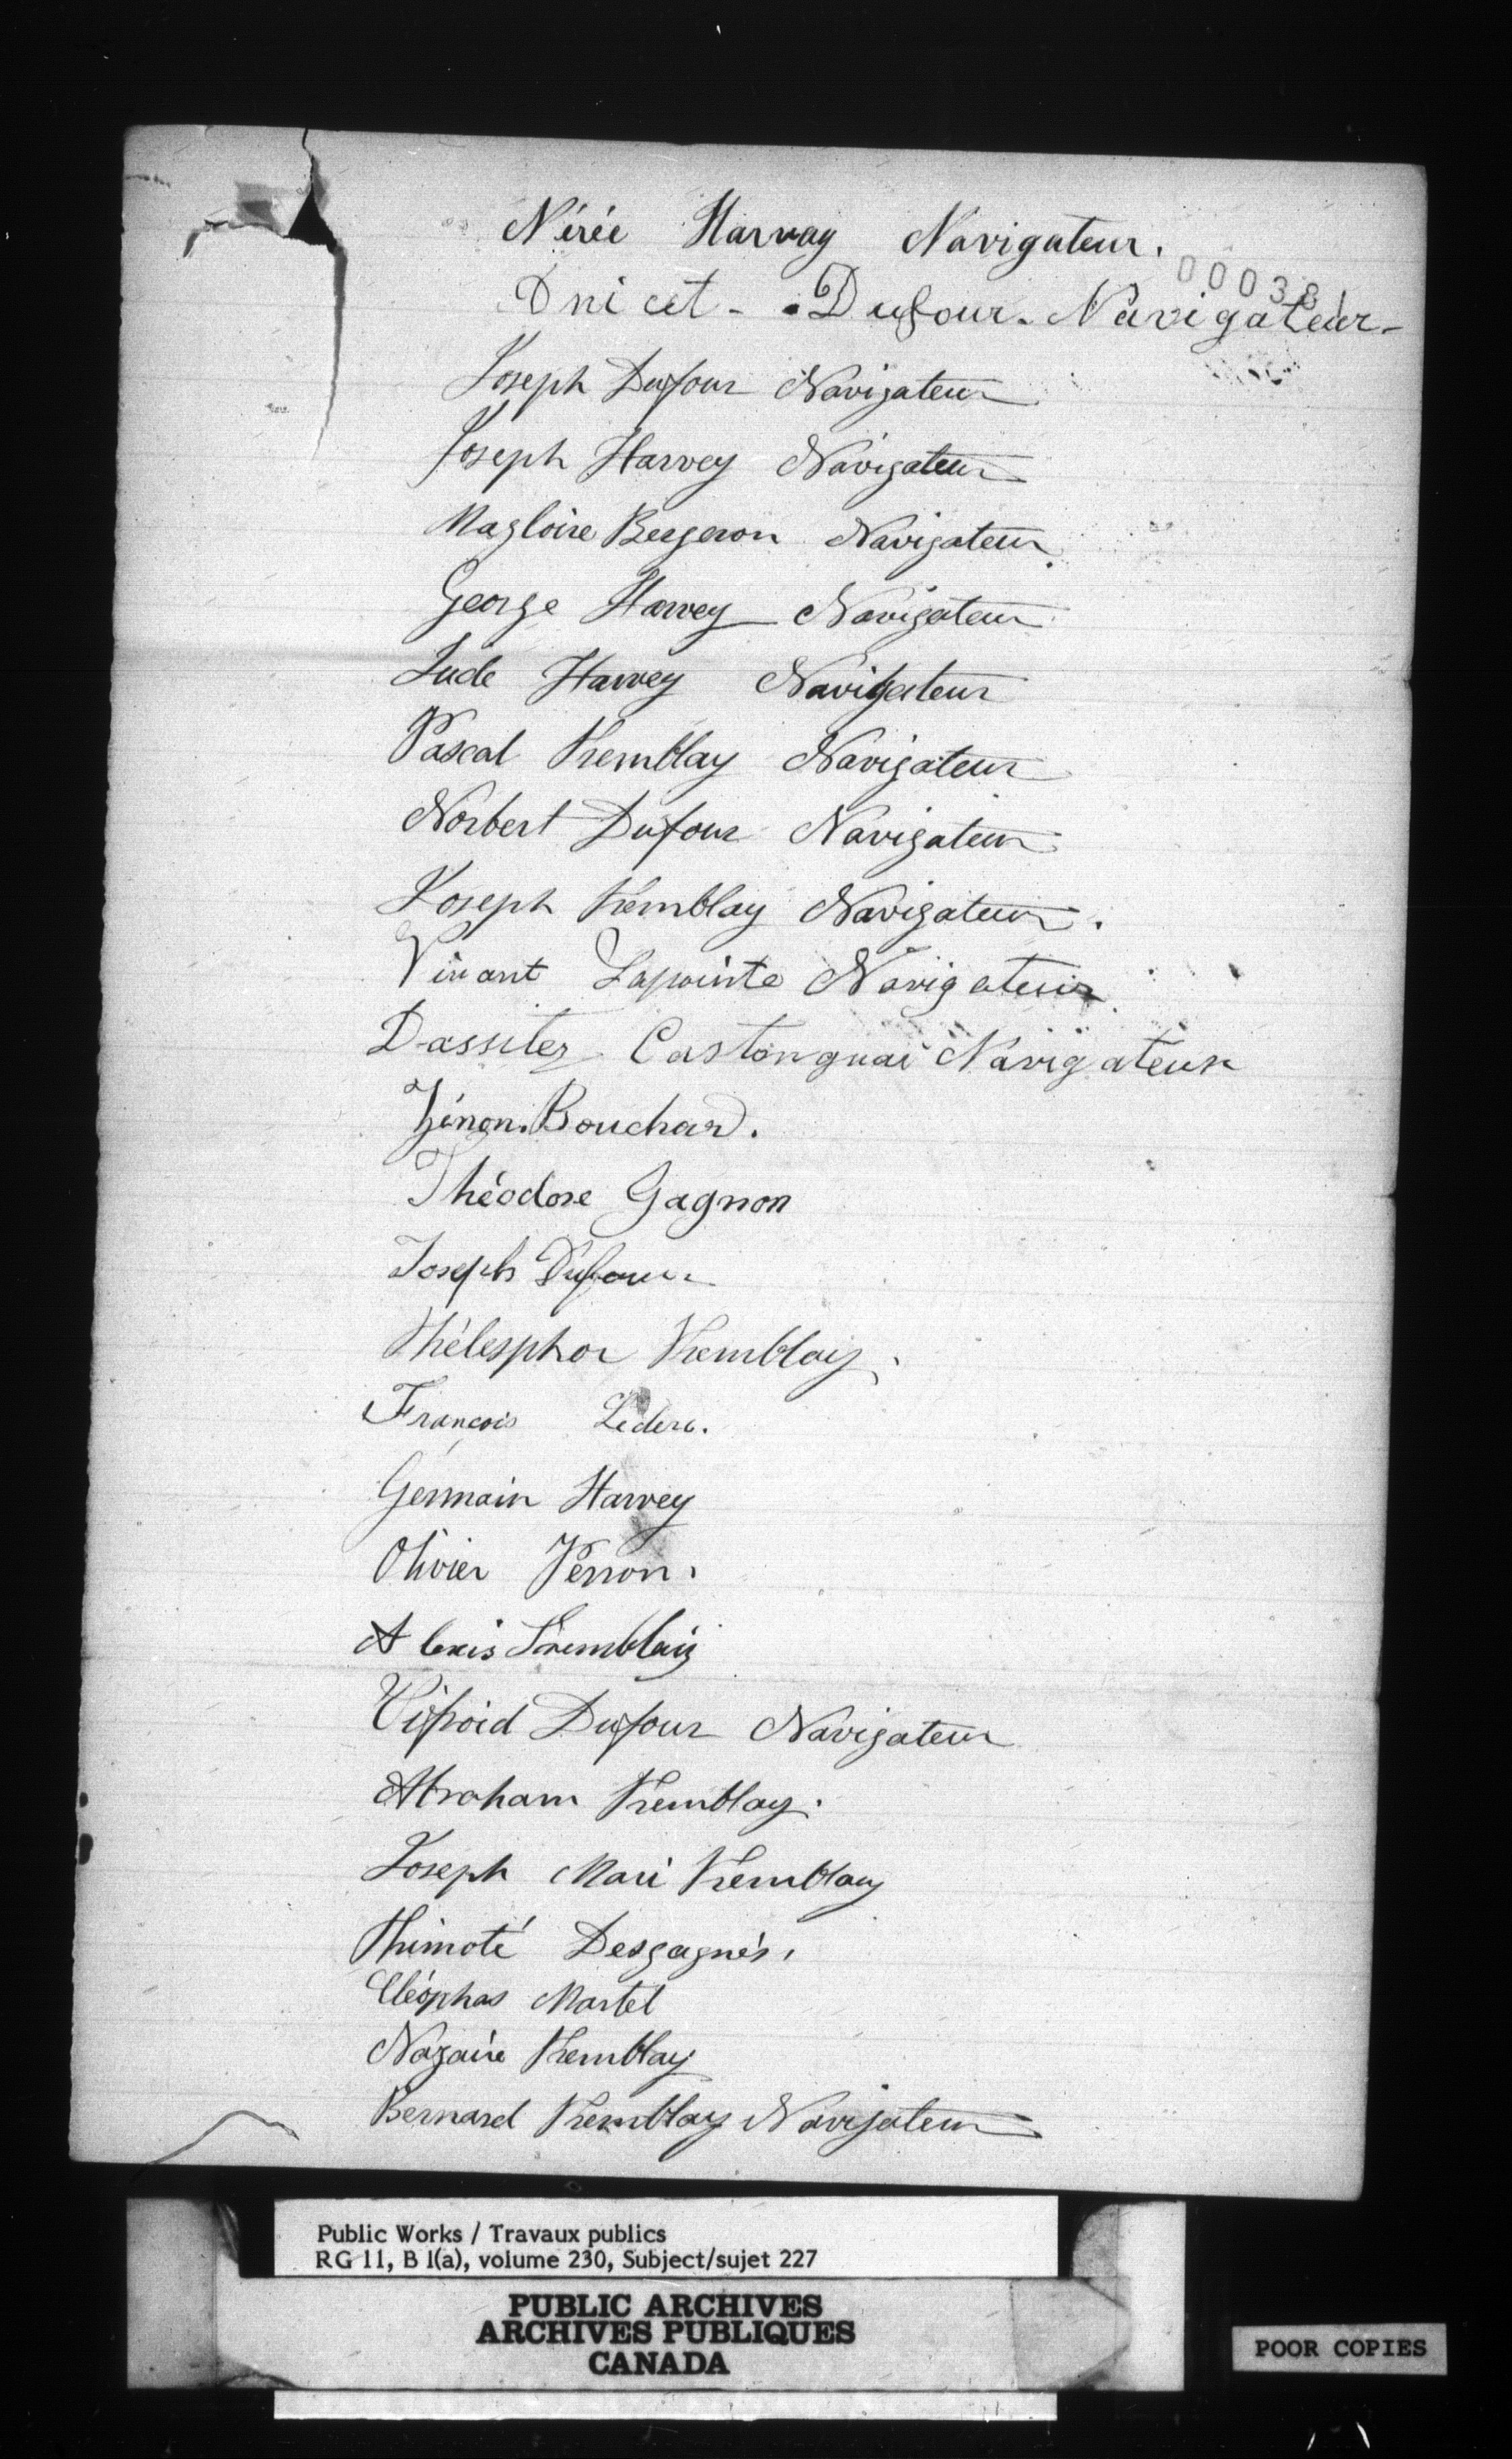 Nérée Harvay Navigateur.
00038
Dnicet - Dufour. Navigateur -
Joseph Dufour Navigateur
Joseph Harvey Navigateur
Magloire Bergeron Navigateur
George Harvey Navigateur
Jude Harvey Navigateur
Pascal Tremblay Navigateur
Norbert Dufour Navigateur
Joseph Tremblay Navigateur.
Vinant Lapointe Navigateur
Dassiter Castonguai Navigateur
Zénon. Bouchard.
Théodore Gagnon
Joseph Dufour
Thélesphor Tremblay.
François Leclerc.
Germain Harvey
Olivier Perron.
Alexis Tremblay
Dufour Navigateur
Abraham Tremblay.
Joseph Mari Tremblay
Thimoté Desgagnés,
Cléophas Martel
Nazaire Tremblay
Bernard Tremblay Navigateur
Public Works / Travaux publics
RG 11, B 1(a), volume 230, Subject/sujet 227
PUBLIC ARCHIVES
ARCHIVES PUBLIQUES
CANADA
POOR COPIES